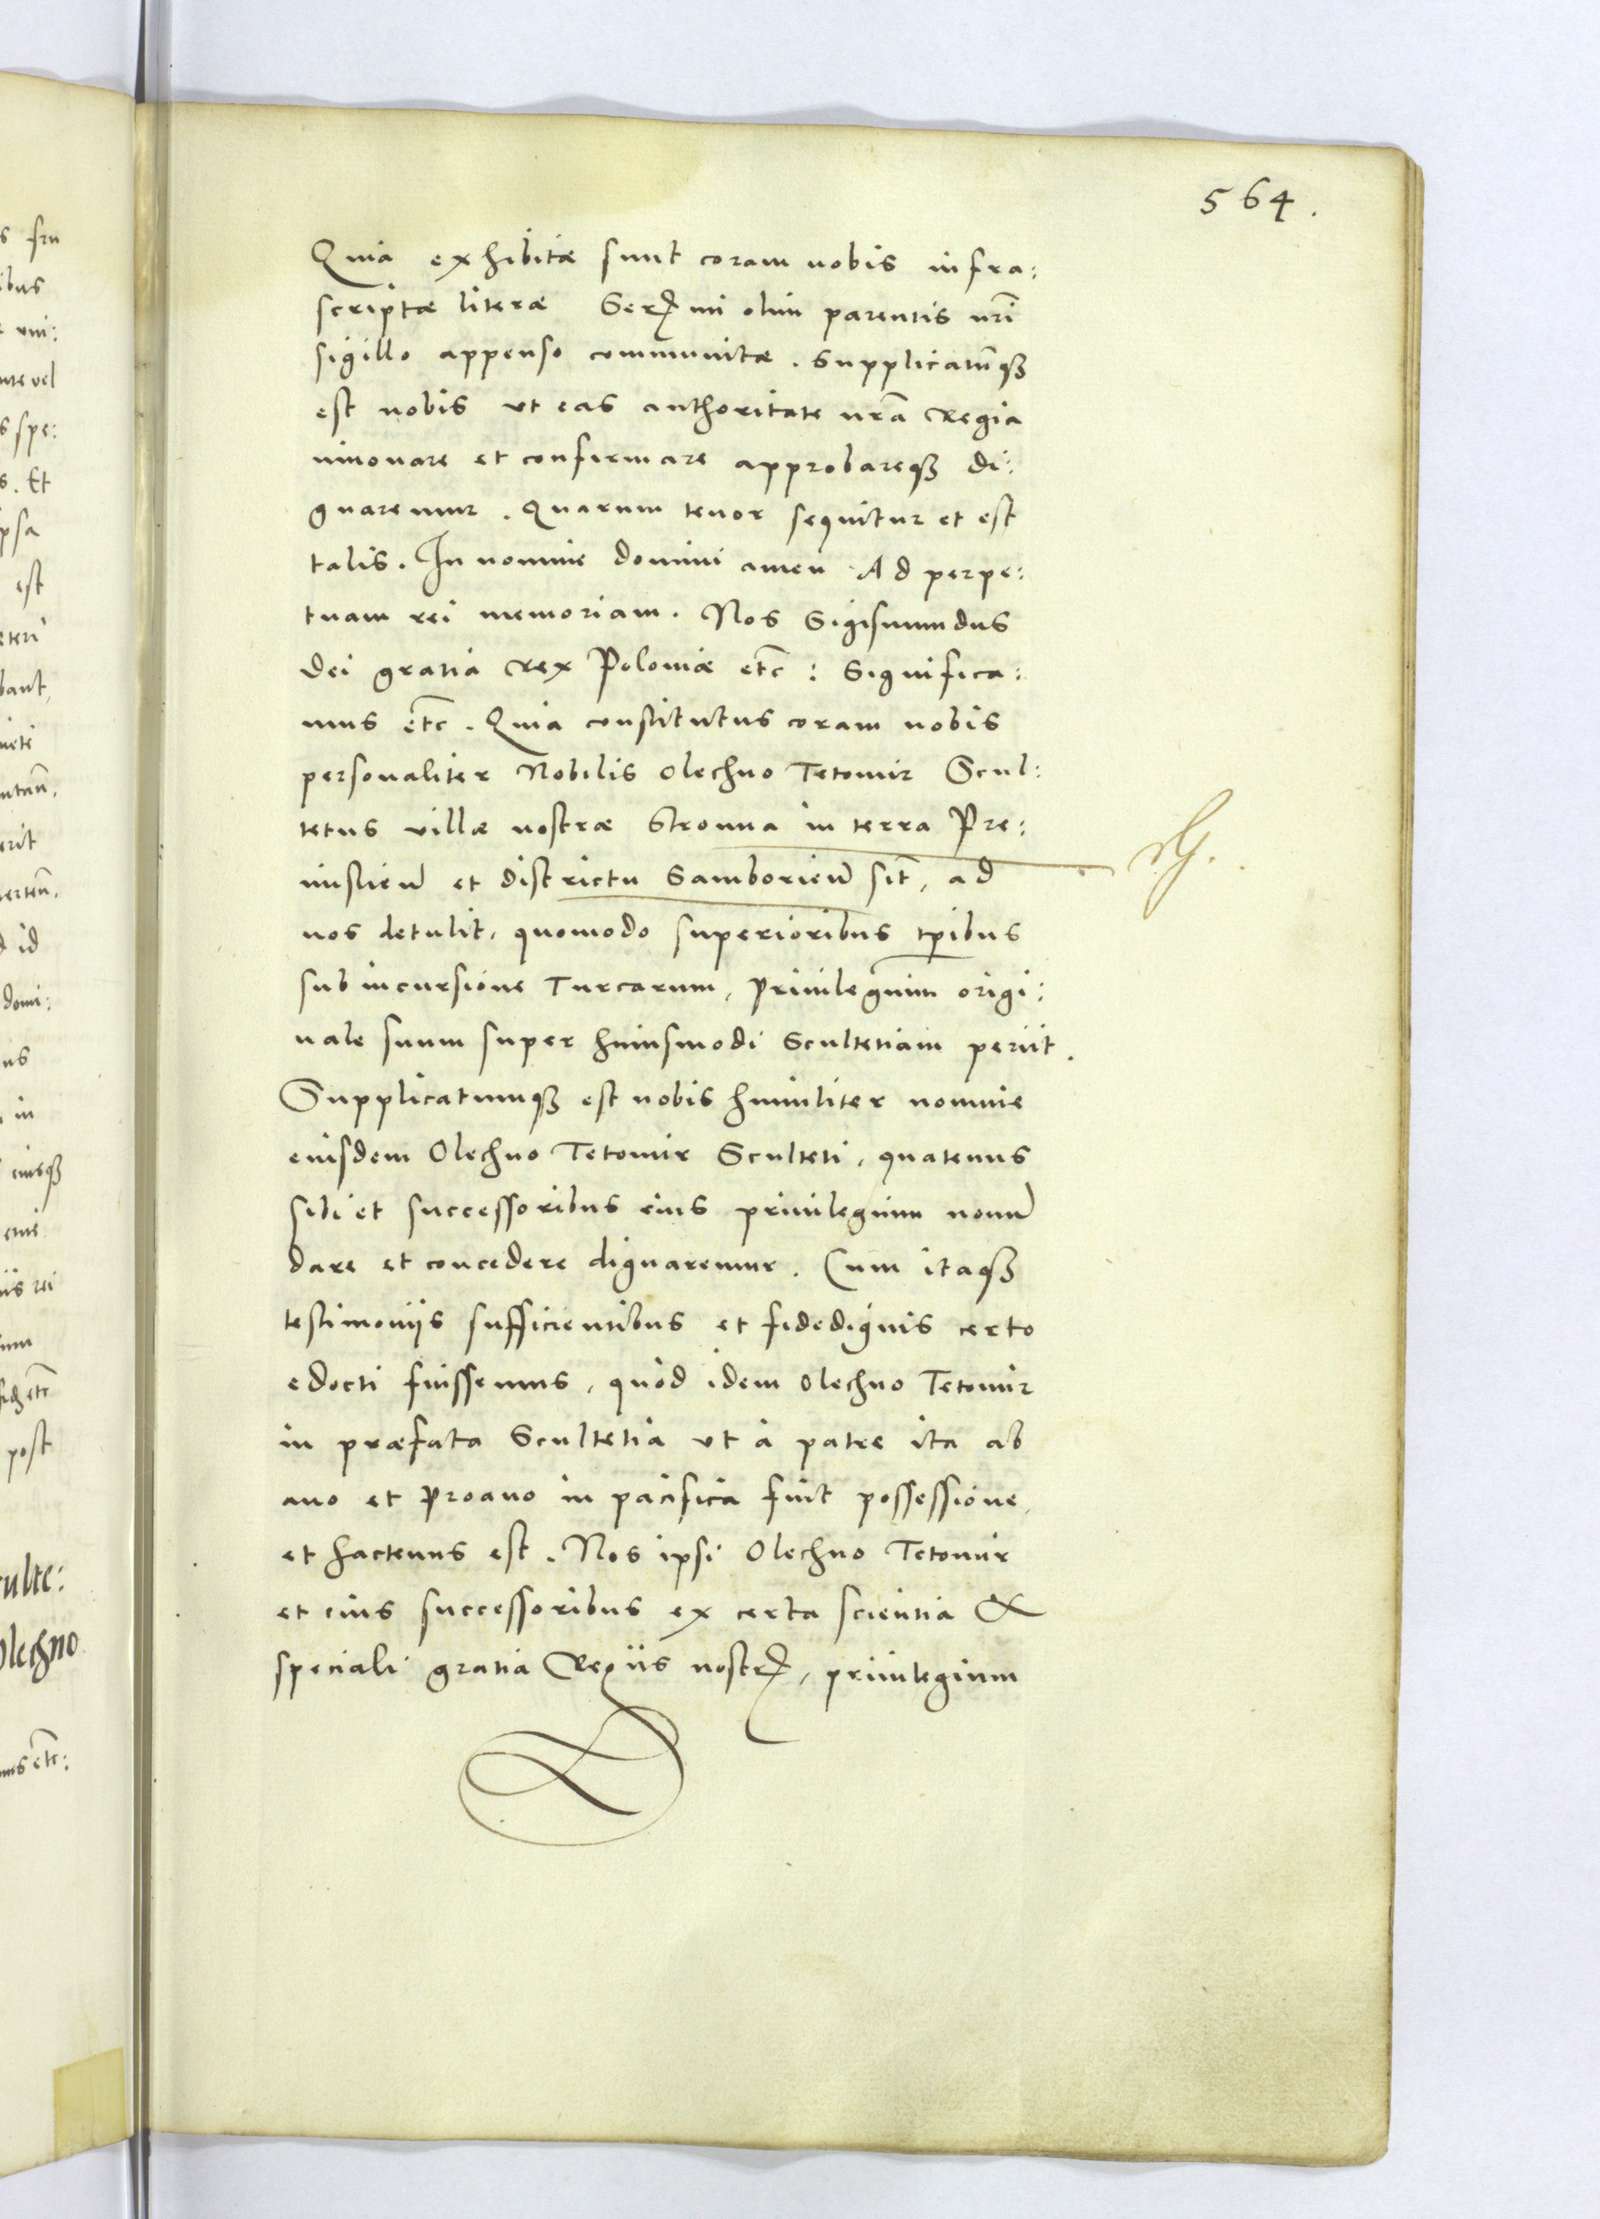 564.
Quia exhibitæ sunt coram nobis infra:
scriptæ literæ Serᵐⁱ olim parentis nr̃i
sigillo appenso communitæ. Supplicatũqȝ
est nobis ut eas authoritate nr̃a Regia
innouare et confirmare approbareqȝ di:
gnaremur. Quarum tenor sequitur et est
talis. In nomine domini amen Ad perpe:
tuam rei memoriam. Nos Sigismundus
Dei gratia Rex Poloniæ etc̃: Significa:
mus etc̃. Quia constitutus coram nobis
personaliter Nobilis Olechno Tetomir Scul:
tetus villæ nostræ Stronna in terra Pre:
mislieñ et districtu Samborieñ sit̃, ad
nos detulit, quomodo superioribus tp̃ibus
sub incursione Turcarum, priuilegium origi:
nale suum super huiusmodi Scultetiam periit.
Supplicatumqȝ est nobis humiliter nomine
eiusdem Olechno Tetomir Sculteti, quatenus
sibi et successoribus eius priuilegium nouũ
dare et concedere dignaremur. Cum itaqȝ
testimoniis sufficientibus et fidedignis certo
edocti fuissemus, quòd idem Olechno Tetomir
in præfata Scultetia ut à patre ita ab
auo et Proauo in pacifica fuit possessione,
et hactenus est. Nos ipsi Olechno Tetomir
et eius successoribus ex certa scientia &
speciali gratia Regiis nostrꝭ, priuilegium
s fru
ibus
vni:
nte vel
s spe:
s. Et
ipsa
est
eteri
bant,
erit
id
domi:
in
eiusqȝ
rei
post
culte:
Olechno
mus etc̃: